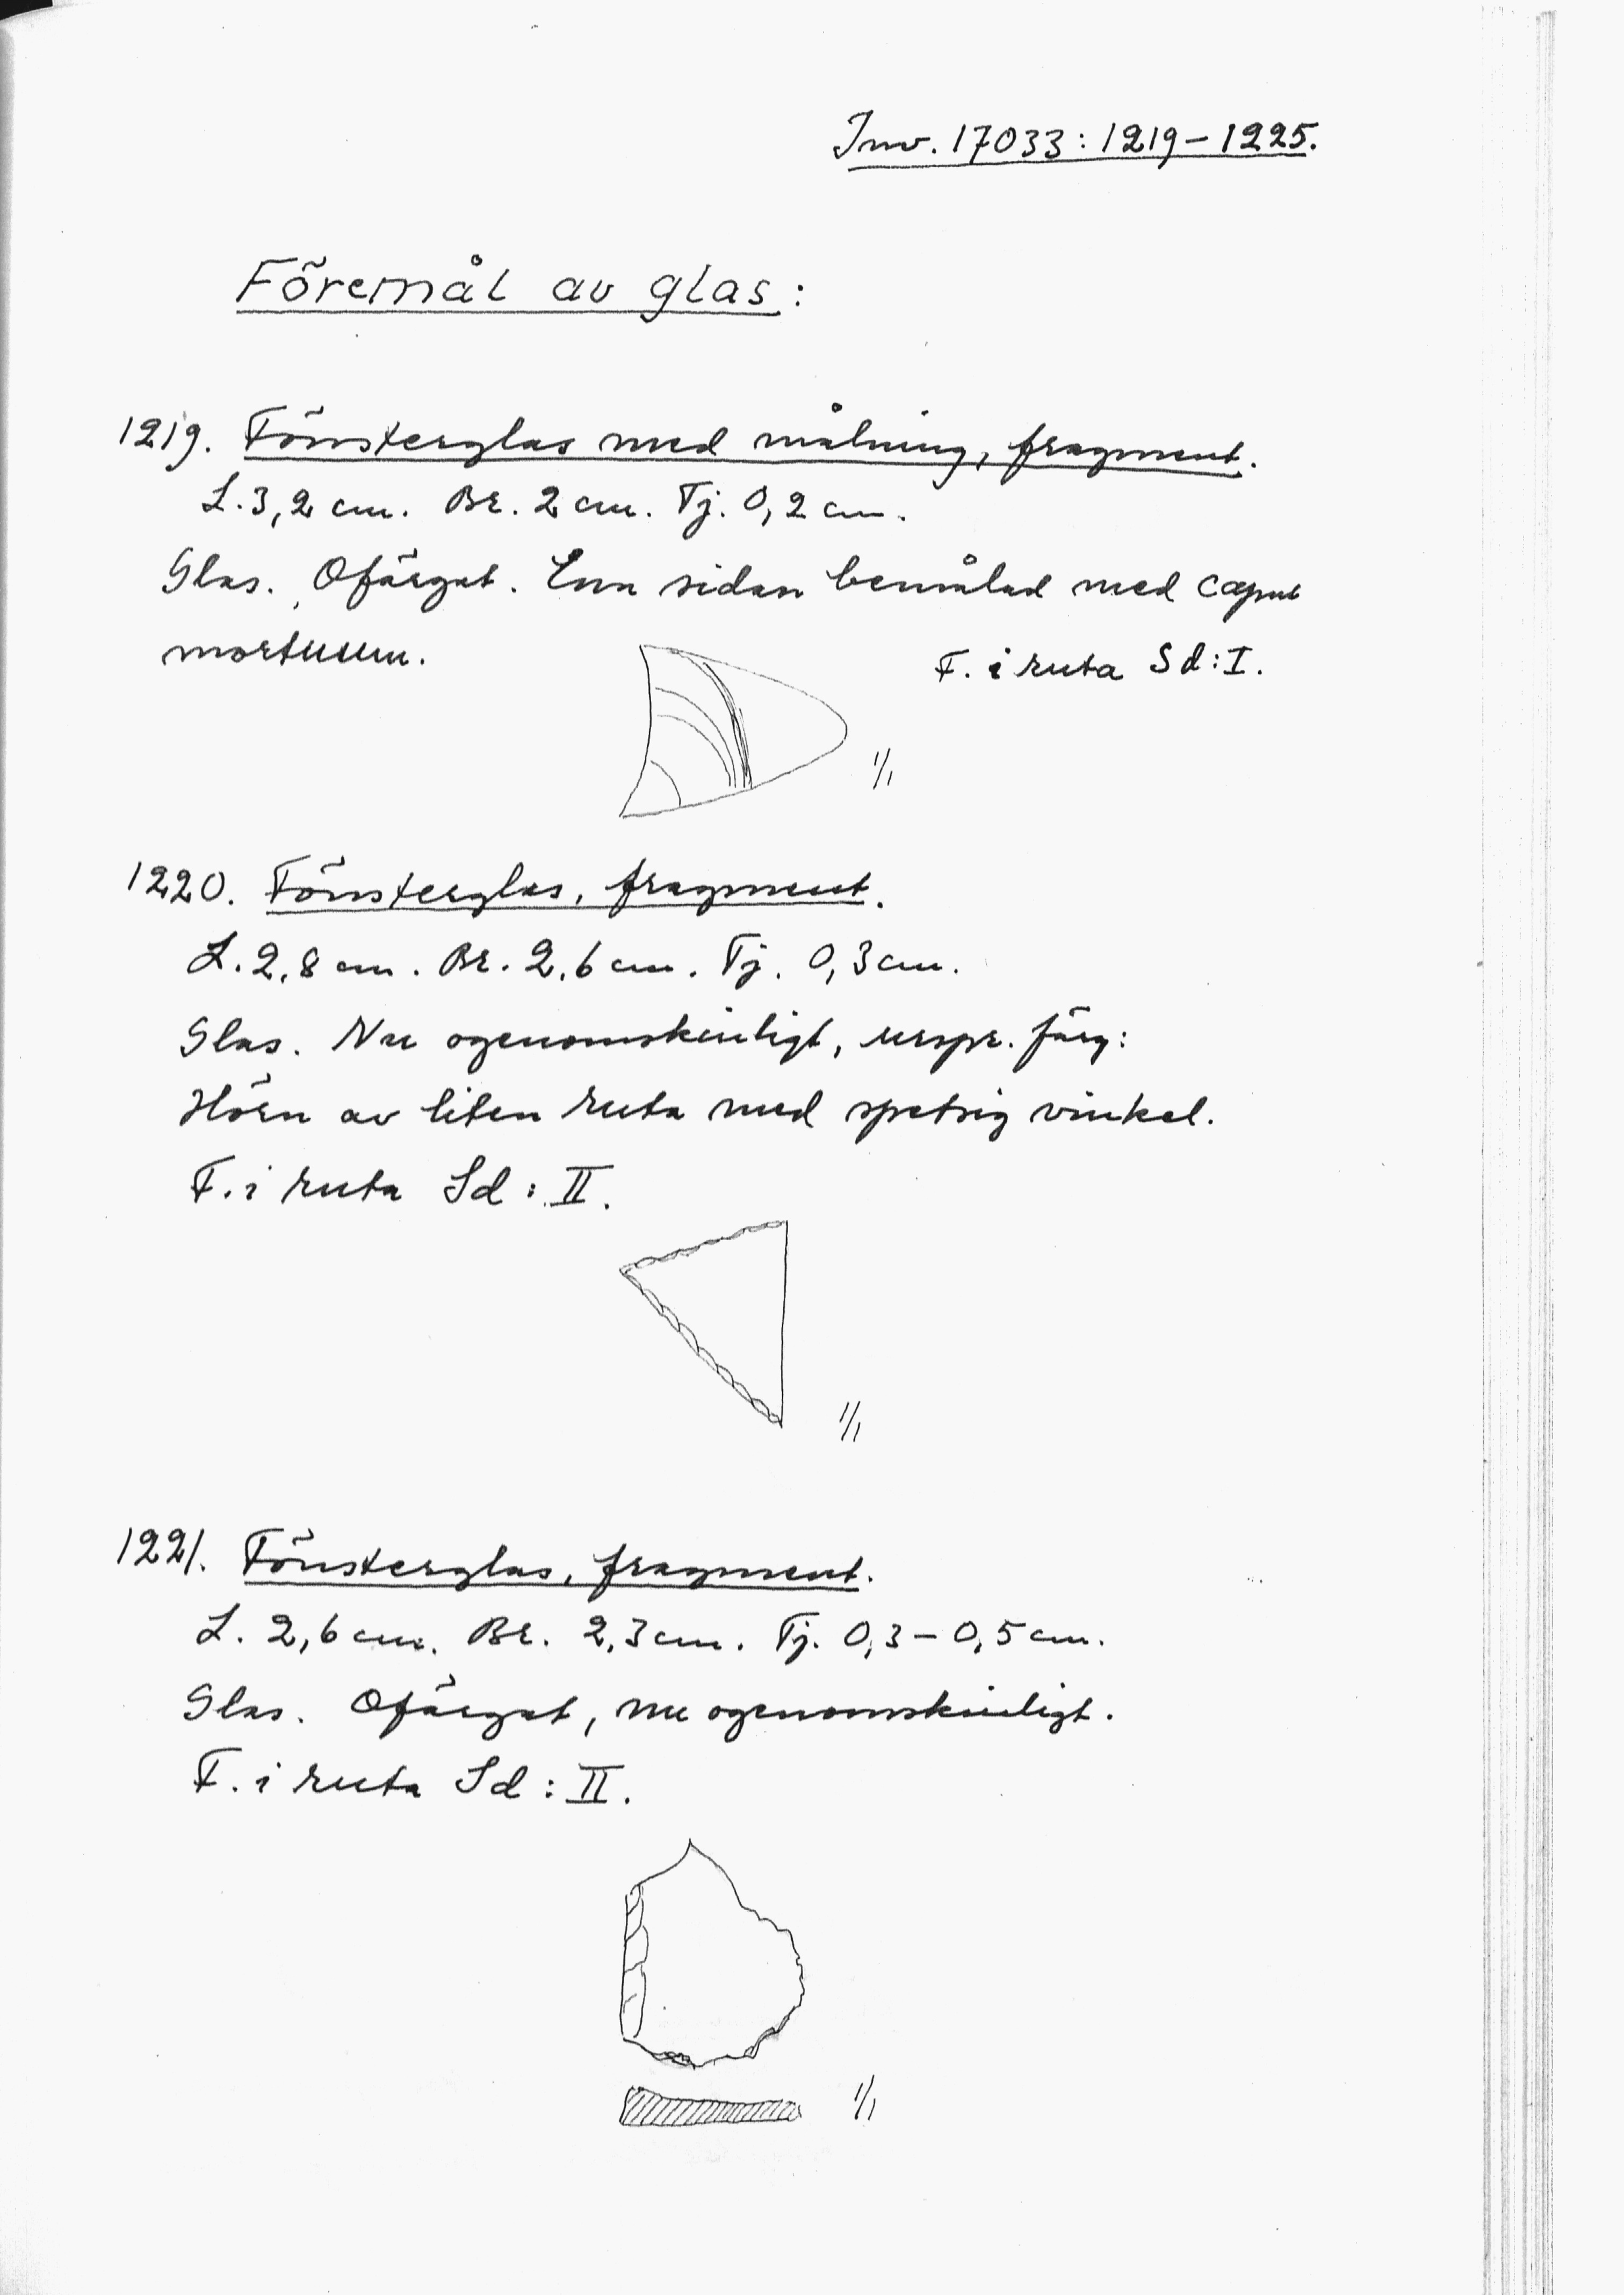 Inv. 17033: 1219 – 1225.
Föremål av glas:
1219. Fönsterglas med målning, fragment.
L. 3,2 cm. Br. 2 cm. Tj. 0,2 cm.
Glas. Ofärgat. Ena sidan bemålad med caput
mortuum.
F. i ruta Sd: I.
1/1
1220. Fönsterglas, fragment.
L. 2,8 cm. Br. 2,6 cm. Tj. 0,3 cm.
Glas. Nu ogenomskinligt, urspr. färg:
Hörn av liten ruta med spetsig vinkel.
F. i ruta Sd: II.
1/1
1221. Fönsterglas, fragment.
L. 2,6 cm. Br. 2,3 cm. Tj. 0,3 – 0,5 cm.
Glas. Ofärgat, nu ogenomskinligt.
F. i ruta Sd: II.
1/1